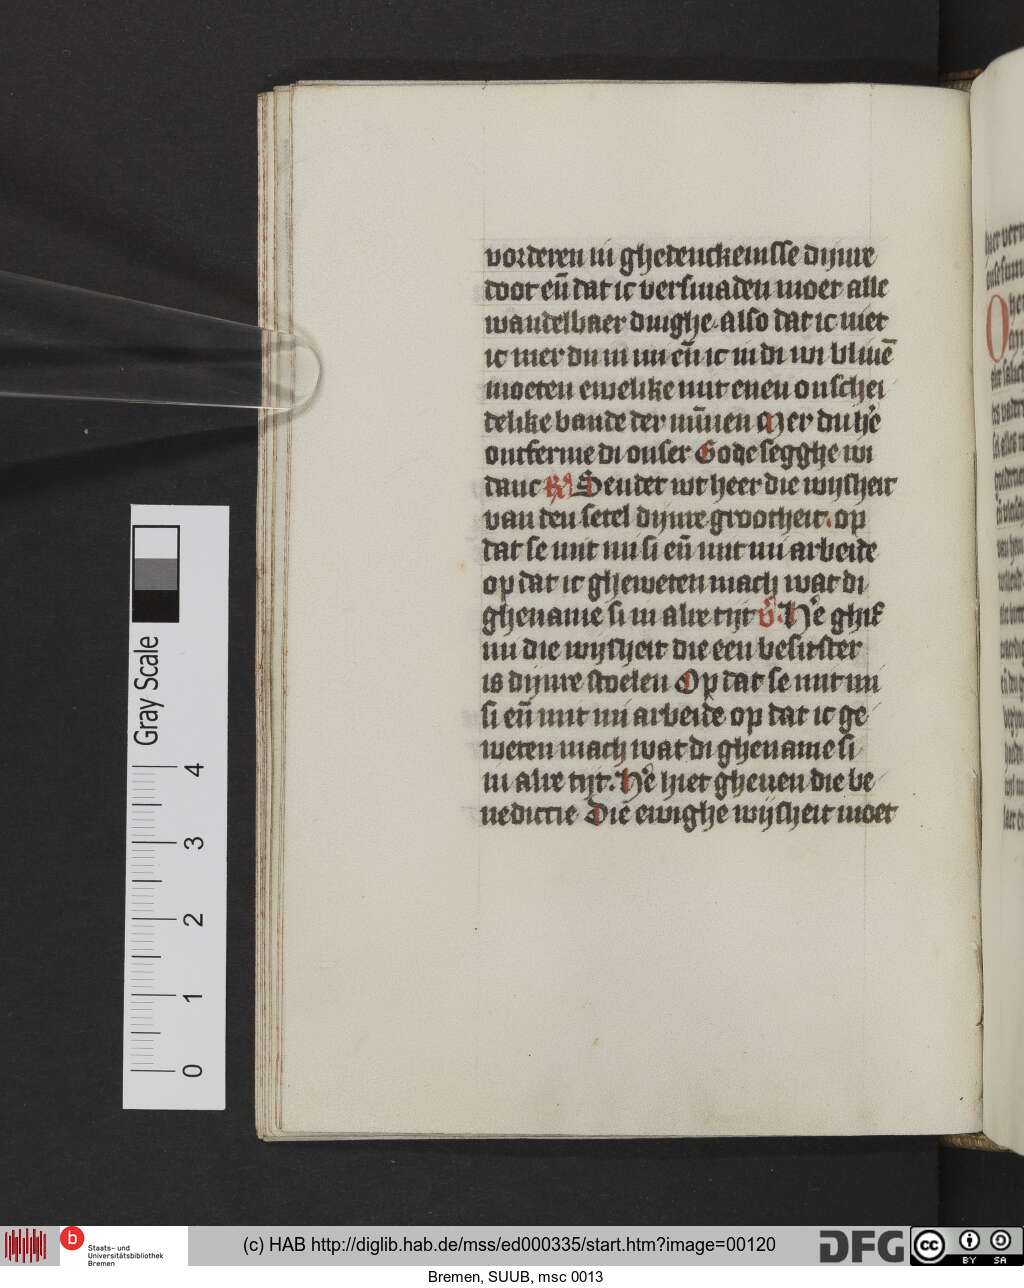 vorderen in ghedenckenisse dijnre
doot en̄ dat ic versmaden moet alle
wandelbaer dinghe. also dat ic niet
ic mer du in mi en̄ ic in di wi bliuē
moeten ewelike mit enen onschei
delike bande der mīnen Mer du hē
ontferme di onser Gode segghe wi
danc R̷ Sendet wt heer die wijsheit
van den setel dijnre grootheit. op
dat se mit mi si en̄ mit mi arbeide
op dat ic gheweten mach wat di
ghename si in alre tijt v̄. Hē ghif
mi die wijsheit die een besitster
is dijnre stoelen Op dat se mit mi
si en̄ mit mi arbeide op dat ic ge
weten mach wat di ghename si
in alre tijt. Hē hiet gheuen die be
nedictie Die ewighe wijsheit moet
Gray Scale
4
3
2
1
0
b
Staats- und
Universitätsbibliothek
Bremen
(c) HAB http://diglib.hab.de/mss/ed000335/start.htm?image=00120
DFG
cc
BY SA
Bremen, SUUB, msc 0013